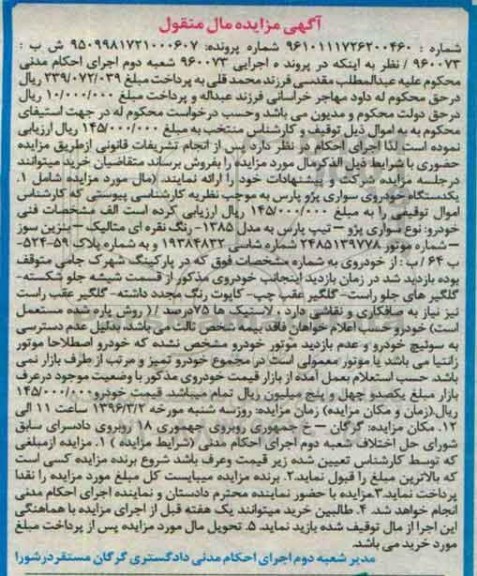 آگهی مزایده مال منقول
شماره : ۹۶۱۰۱۱۱۷۲۶۲۰۰۴۶۰ شماره پرونده: ۹۵۰۹۹۸۱۷۲۱۰۰۰۶۰۷ ش ب :
۹۶۰۰۷۳ / نظر به اینکه در پرونده ه اجرایی ۹۶۰۰۷۳ شعبه دوم اجرای احکام مدنی
محکوم علیه عبدالمطلب مقدسی فرزند محمد قلی به پرداخت مبلغ ۲۳۹/۰۷۲/۰۳۹ ریال
در حق محکوم له داود مهاجر خراسانی فرزند عبداله و پرداخت مبلغ ۱۰/۰۰۰/۰۰۰ ریال
در حق دولت محکوم و مدیون می باشد وحسب درخواست محکوم له در جهت استیفای
محکوم به به اموال ذیل توقیف و کارشناس منتخب به مبلغ ۱۴۵/۰۰۰/۰۰۰ ریال ارزیابی
نموده است لذا اجرای احکام در نظر دارد پس از انجام تشریفات قانونی ازطریق مزایده
حضوری با شرایط ذیل الذکرمال مورد مزایده را بفروش برساند متقاضیان خرید میتوانند
در جلسه مزایده شرکت و پیشنهادات خود را ارائه نمایند. (مال مورد مزایده شامل ۱.
یکدستگاه خودروی سواری پژو پارس به موجب نظریه کارشناسی پیوستی که کارشناس
اموال توقیفی را به مبلغ ۱۴۵/۰۰۰/۰۰۰ ریال ارزیابی کرده است الف مشخصات فنی
خودرو: نوع سواری پژو – تیپ پارس به مدل ۱۳۸۵- رنگ نقره ای متالیک – بنزین سوز
– شماره موتور ۲۴۸۵۱۳۹۷۷۸ شماره شاسی ۱۹۳۸۴۸۳۲ و به شماره پلاک ۵۹-۵۲۴
ب ۶۴ / ب : از خودروی به شماره مشخصات فوق که در پارکینگ شهرک جامی متوقف
بوده بازدید شد در زمان بازدید اینجانب خودروی مذکور از قسمت شیشه جلو شکسته-
گلگیر های جلو راست- گلگیر عقب چپ- کاپوت رنگ مجدد داشته- گلگیر عقب راست
نیز نیاز به صافکاری و نقاشی دارد ، لاستیک ها ۷۵درصد / ( روش پاره شده مستعمل
است) خودرو حسب اعلام خواهان فاقد بیمه شخص ثالث می باشد، بدلیل عدم دسترسی
به سوئیچ خودرو و عدم بازدید موتور خودرو مشخص نشده که خودرو اصطلاحا موتور
زانتیا می باشد یا موتور معمولی است در مجموع خودرو تمیز و مرتب از طرف بازار نمی
باشد. حسب استعلام بعمل آمده از بازار قیمت خودروی مذکور با وضعیت موجود درعرف
بازار مبلغ یکصدو چهل و پنج میلیون ریال تمام میباشد. قیمت خودرو ۱۴۵/۰۰۰/۰۰۰
ریال.(زمان و مکان مزایده) زمان مزایده: روزسه شنبه مورخه ۱۳۹۶/۳/۲ ساعت ۱۱ الی
۱۲. مکان مزایده: گرگان – خ جمهوری روبروی جمهوری ۱۸ روبروی دادسرای سابق
شورای حل اختلاف شعبه دوم اجرای احکام مدنی (شرایط مزایده ) ۱. مزایده ازمبلغی
که توسط کارشناس تعیین شده زیر قیمت وعرف باشد شروع برنده مزایده کسی است
که بالاترین مبلغ را قبول نماید.۲. برنده مزایده میبایست کل مبلغ مورد مزایده را نقدا
پرداخت نماید.۳.مزایده با حضور نماینده محترم دادستان و نماینده اجرای احکام مدنی
انجام خواهد شد. ۴. طالبین خرید میتوانند یک هفته قبل از اجرای مزایده با هماهنگی
این اجرا از مال توقیف شده بازید نمایند. ۵. تحویل مال مورد مزایده پس از پرداخت مبلغ
مورد خرید می باشد.
مدیر شعبه دوم اجرای احکام مدنی دادگستری گرگان مستقر در شورا